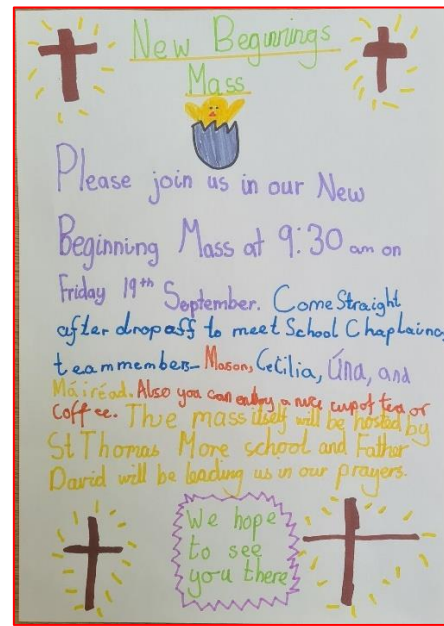 New Beginnings
Mass
Please join us in our New
Beginning Mass at 9:30 am on
Friday 19th September. Come Straight
after dropoff to meet School Chaplaincy
team members- Mason, Cecilia, Úna, and
Máiréad. Also you can enjoy a nice cup of tea or
Coffee. The mass itself will be hosted by
St Thomas More school and Father
David will be leading us in our prayers.
We hope
to see
you there